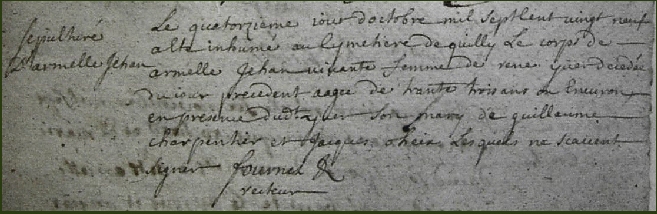 sepulhure
D'armelle Jehan
Le quatorzieme jour d'octobre mil sept Cent vingt neuf
a ete inhumé au Cymetiere de quilly Le corps de
armelle Jehan vivante femme de rene yuer decedée
du jour precedent aagee de trante trois ans ou Environ
en presence dudt yuer son mary de guillaume
charpentier et Jacques oheix Lesquels ne scavent
signer fournet
recteur